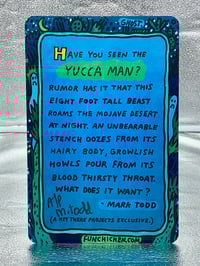 GHOST
HAVE YOU SEEN THE
YUCCA MAN?
RUMOR HAS IT THAT THIS
EIGHT FOOT TALL BEAST
ROAMS THE MOJAVE DESERT
AT NIGHT. AN UNBEARABLE
STENCH OOZES FROM ITS
HAIRY BODY, GROWLISH
HOWLS POUR FROM ITS
BLOOD THIRSTY THROAT.
WHAT DOES IT WANT?
- MARK TODD
A/P
M.Todd
(A HEY THERE PROJECTS EXCLUSIVE.)
FUNCHICKEN.COM